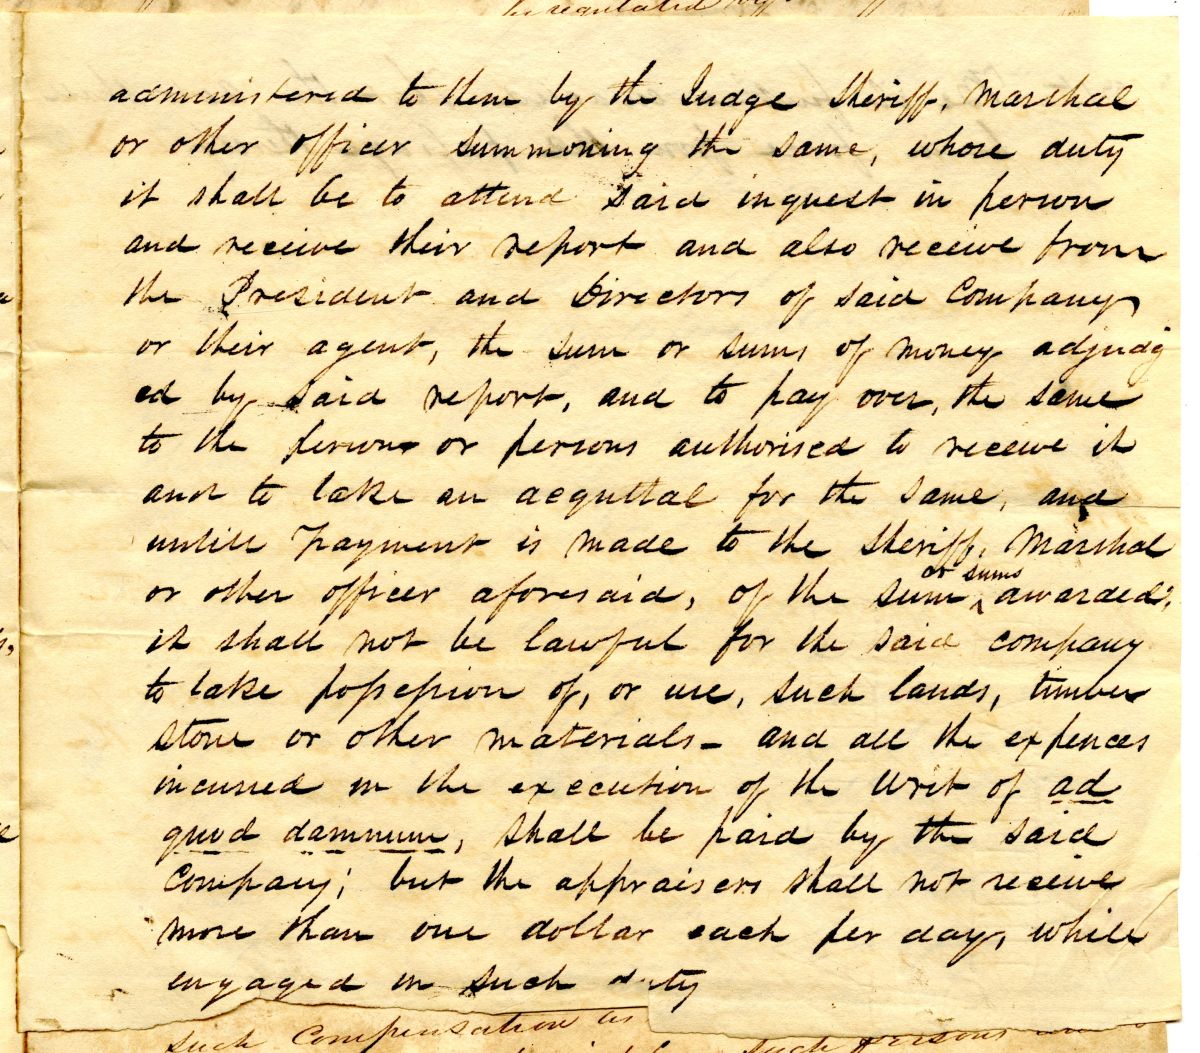 be regulated by
administered to them by the Judge Sheriff, Marshal
or other officer summoning the same, whose duty
it shall be to attend said inquest in person
and receive their report and also receive from
the President and Directors of said Company
or their agent, the sum or sums of money adjudg
ed by said report, and to pay over, the same
to the person or persons authorised to receive it
and to take an acquttal for the same, and
untill Payment is made to the Sheriff, Marshal
or other officer aforesaid, of the sum or sums awarded,
it shall not be lawful for the said company
to take possession of, or use, such lands, timber
stone or other materials - and all the expences
incurred in the execution of the writ of ad
quod damnum, shall be paid by the said
Company; but the appraisers shall not receive
more than one dollar each per day, while
engaged in such duty
such Compensation as
such persons